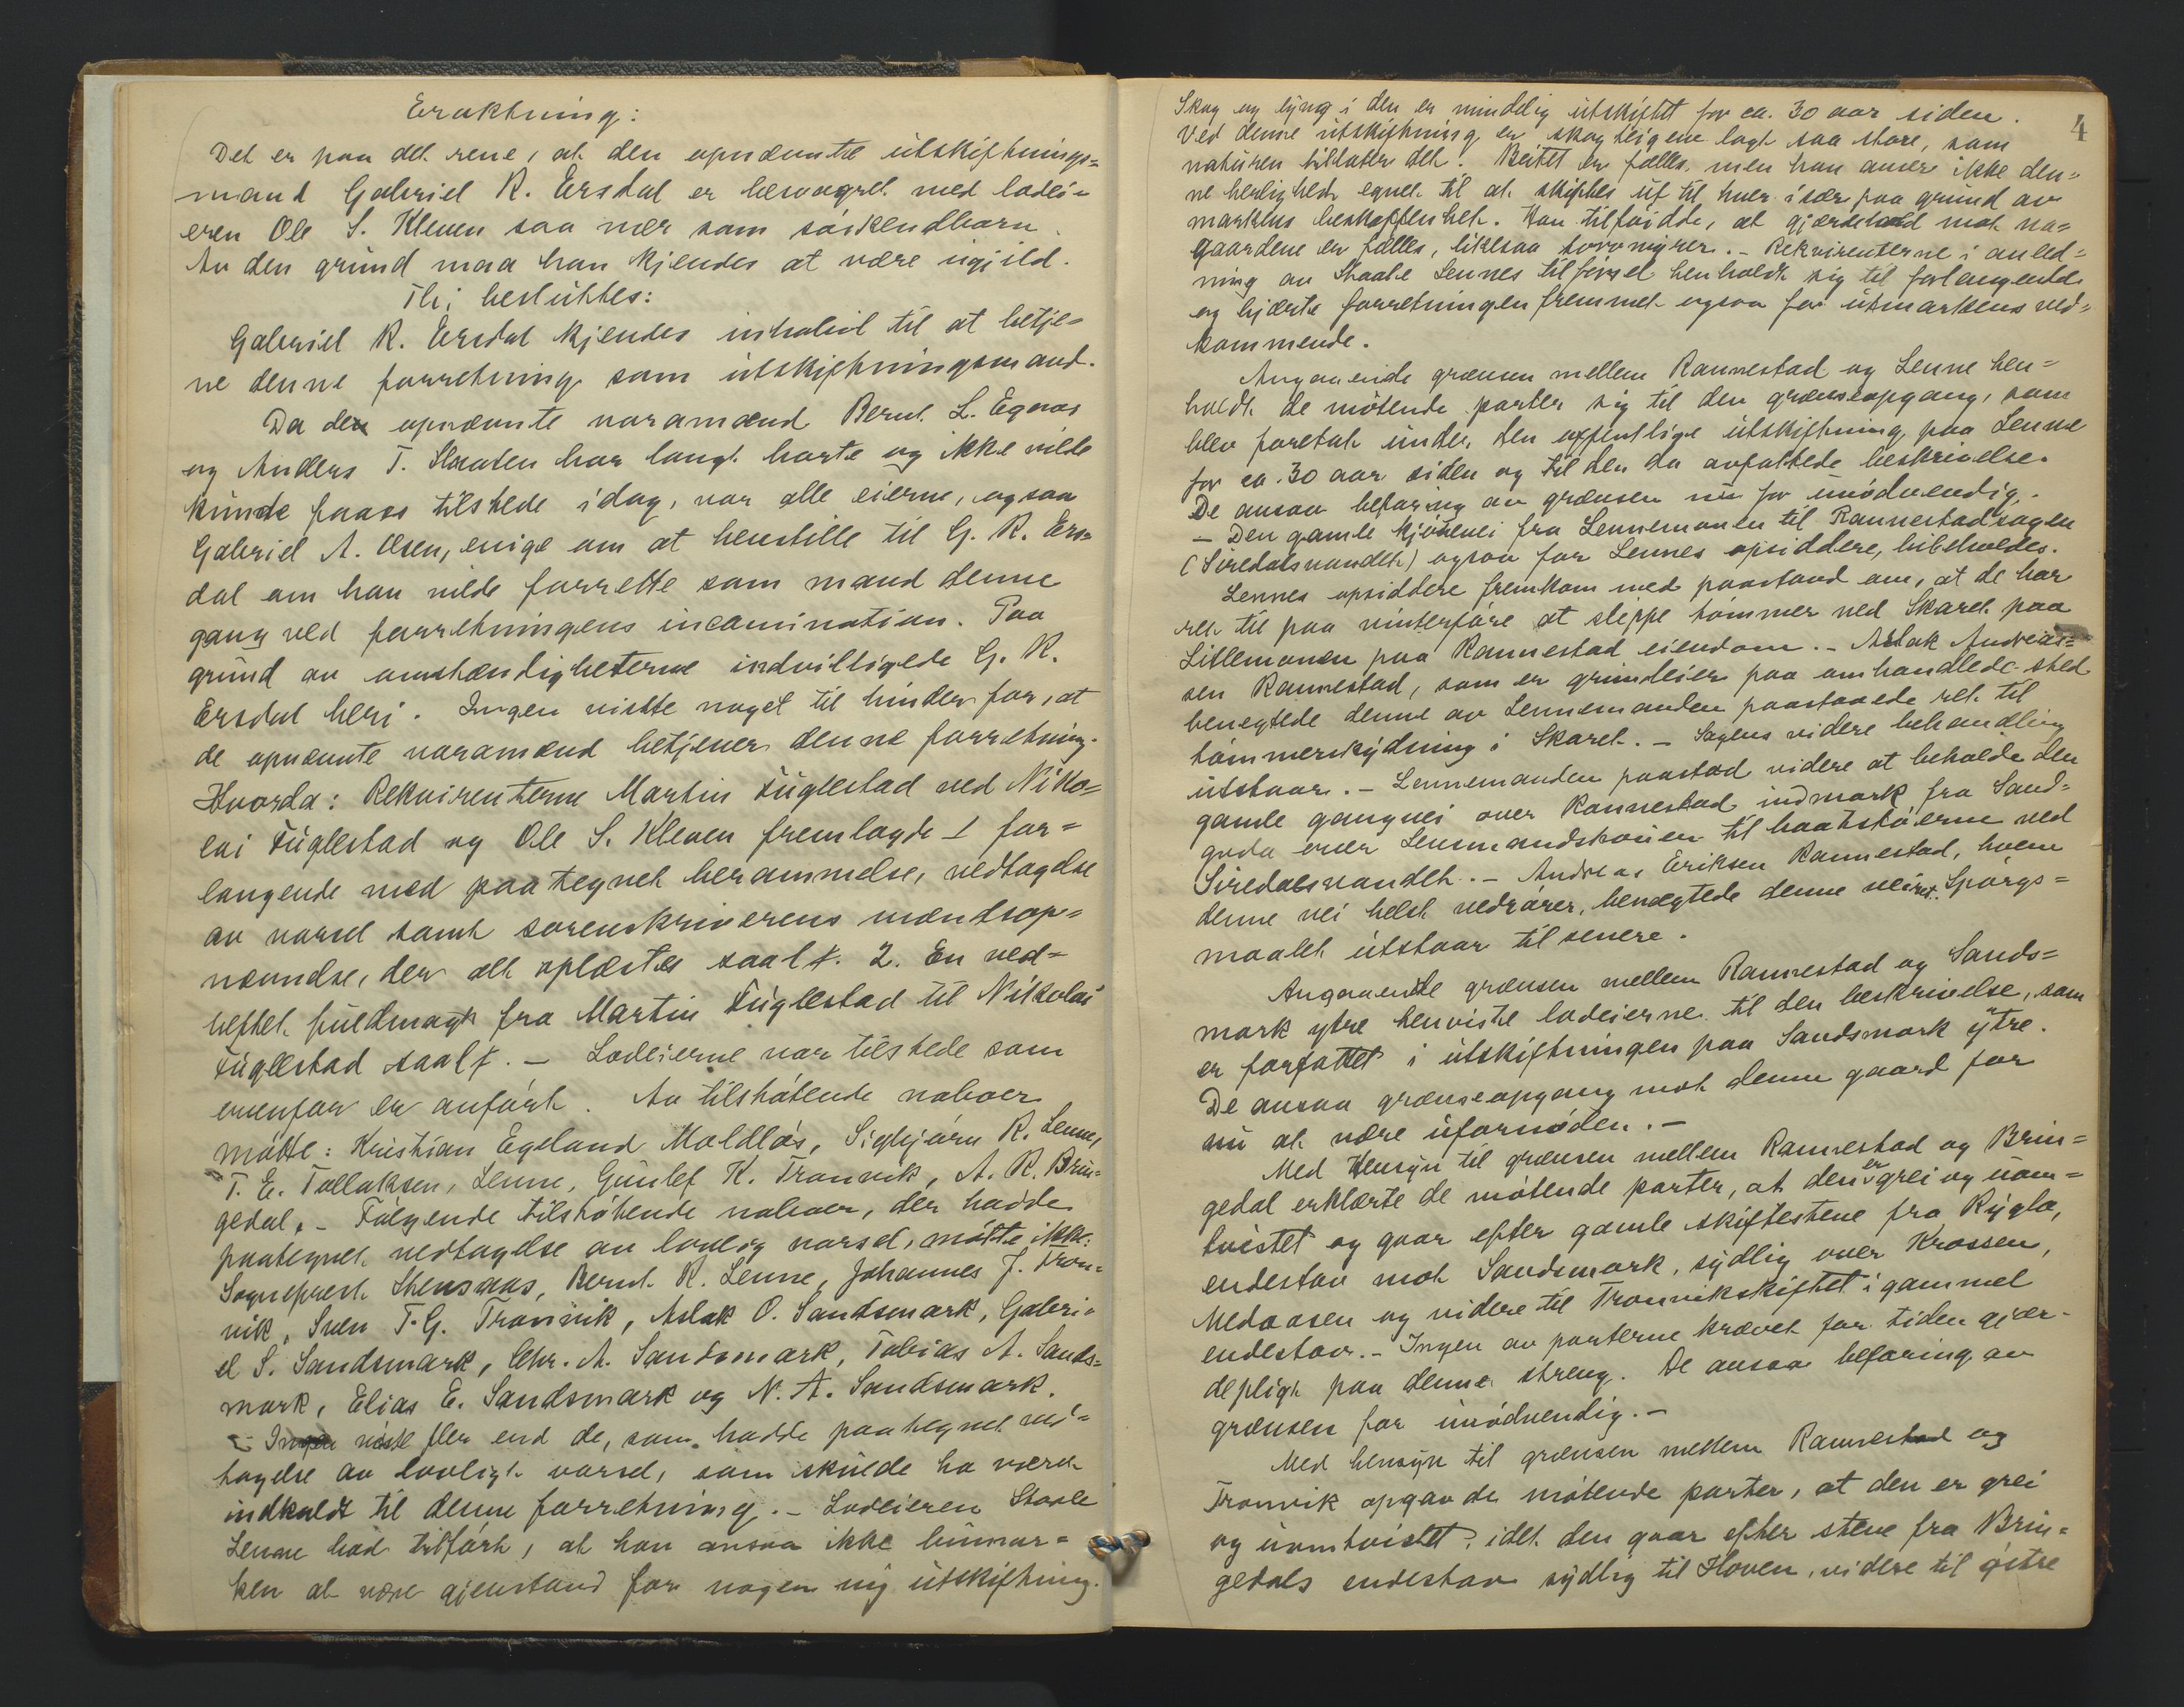 Eraktning:
Det er paa det rene, at den opnævnte utskiftnings=
mand Gabriel R. Ersdal er besvogret med lodei=
eren Ole S. Kleven saa nær som söskendbarn.
Av den grund maa han kjendes at være ugild.
Thi besluttes:
Gabriel R. Ersdal kjendes inhabil til at betje=
ne denne forretning som utskiftningsmand.
Da den opnævnte varamænd Bernt L. Egenes
og Anders T. Slaaten har langt borte og ikke vilde
kunde faaes tilstede idag, var alle eierne, ogsaa
Gabriel A. Olsen, enige om at henstille til G. R. Ers=
dal om han vilde forrette som mand denne
gang ved forretningens incamination. Paa
grund av omstændigheterne indvilligede G. R.
Ersdal heri. Ingen visste noget til hinder for, at
de opnævnte varamænd betjener denne forretning.
Hvorda: Rekvirenterne Martin Fuglestad ved Niko=
lai Fuglestad og Ole S. Kleven fremlagde 1 for=
langende med paategnet berammelse, vedtagelse
av varsel samt sorenskriverens mandsop=
nævndse, der alt oplæstes saalt. 2. En ved=
heftet fuldmagt fra Martin Fuglestad til Nikolai
Fuglestad saalt. – Lodeierne var tilstede som
ovenfor er anfört. Av tilstötende naboer
mötte: Kristian Egeland Moldlös, Sigbjörn R. Lenne,
T. E. Tollaksen, Lenne, Gunlef K. Tronvik, A. R. Brin=
gedal. – Fölgende tilstötende naboer, der hadde
paategnet vedtagelse av lovlig varsel, mötte ikke:
Sogneprest Stensaas, Bernt R. Lenne, Johannes J. Tron=
vik, Sven T. G. Tronvik, Aslak O. Sandsmark, Gabri=
el S. Sandsmark, Chr. A. Sandsmark, Tobias A. Sands=
mark, Elias E. Sandsmark og N. A. Sandsmark.
– Ingen viste fler end de, som hadde paategnet ved=
tagelse av lovligt varsel, som skulde ha været
indkaldt til denne forretning. – Lodeieren Staale
Lenne bad tilfört, at han ansaa ikke heimar=
ken at være gjenstand for nogen ny utskiftning.
4
Skog og lyng i den er mindelig utskiftet for ca. 30 aar siden.
Ved denne utskiftning er skogteigene lagt saa store, som
naturen tillater det. Beitet er fælles, men han anser ikke den=
ne herlighet egnet til at skiftes ut til hver især paa grund av
markens beskaffenhet. Han tilföidde, at gjærdehold mot na=
gaardene er fælles, likesaa torvmyrer. – Rekvirenterne i anled=
ning av Staale Lennes tilförsel henholdt sig til forlangende
og begjærte forretningen fremmet ogsaa for utmarkens ved=
kommende.
Angaaende grænsen mellem Rannestad og Lenne hen=
holdt de mötende parter sig til den grænseopgang, som
blev foretat under den offentlige utskiftning paa Lenne
for ca. 30 aar siden og til den da avfattede beskrivelse.
De ansaa befaring av grænsen nu for unödvendig.
– Den gamle kjörevei fra Lennemonen til Rannestadsagen
(Siredalsvandet) ogsaa for Lennes opsiddere, bibeholdes.
Lennes opsiddere fremkom med paastand om, at de har
ret til paa vinterföre at slippe tömmer ned Skaret paa
Litlemonen paa Rannestad eiendom. – Aslak Andreas=
sen Rannestad, som er grundeier paa omhandlede sted
benegtede denne av Lennemanden paastaaede ret til
tömmerskydning i Skaret. – Sagens videre behandling
utstaar. – Lennemanden paastod videre at beholde den
gamle gangvei over Rannestad indmark fra Sand=
goda over Lensmandshouen til baatstöerne ved
Siredalsvandet. – Andreas Eriksen Rannestad, hvem
denne vei helst vedrörer, benægtede denne veiret. Spörgs=
maalet utstaar til senere.
Angaaende grænsen mellem Rannestad og Sands=
mark ytre henviste lodeierne til den beskrivelse, som
er forfattet i utskiftningen paa Sandsmark ytre.
De ansaa grænseopgang mot denne gaard for
nu at være ufornöden. –
Med Hensyn til grænsen mellem Rannestad og Brin=
gedal erklærte de mötende parter, at den er grei og uom=
tvistet og gaar efter gamle skiftestene fra Rygla,
endestav mot Sandsmark, sydlig over Krossen,
Medaasen og videre til Tronvikskiftet i gammel
endestav. – Ingen av parterne krævet for tiden gjær-
depligt paa denne streng. De ansaa befaring av
grænsen for unödvendig. –
Med hensyn til grænsen mellem Rannestad og
Tronvik opgav de mötende parter, at den er grei
og uomtvistet, idet den gaar efter stene fra Brin=
gedals endestav sydlig til Hoven, videre til östre